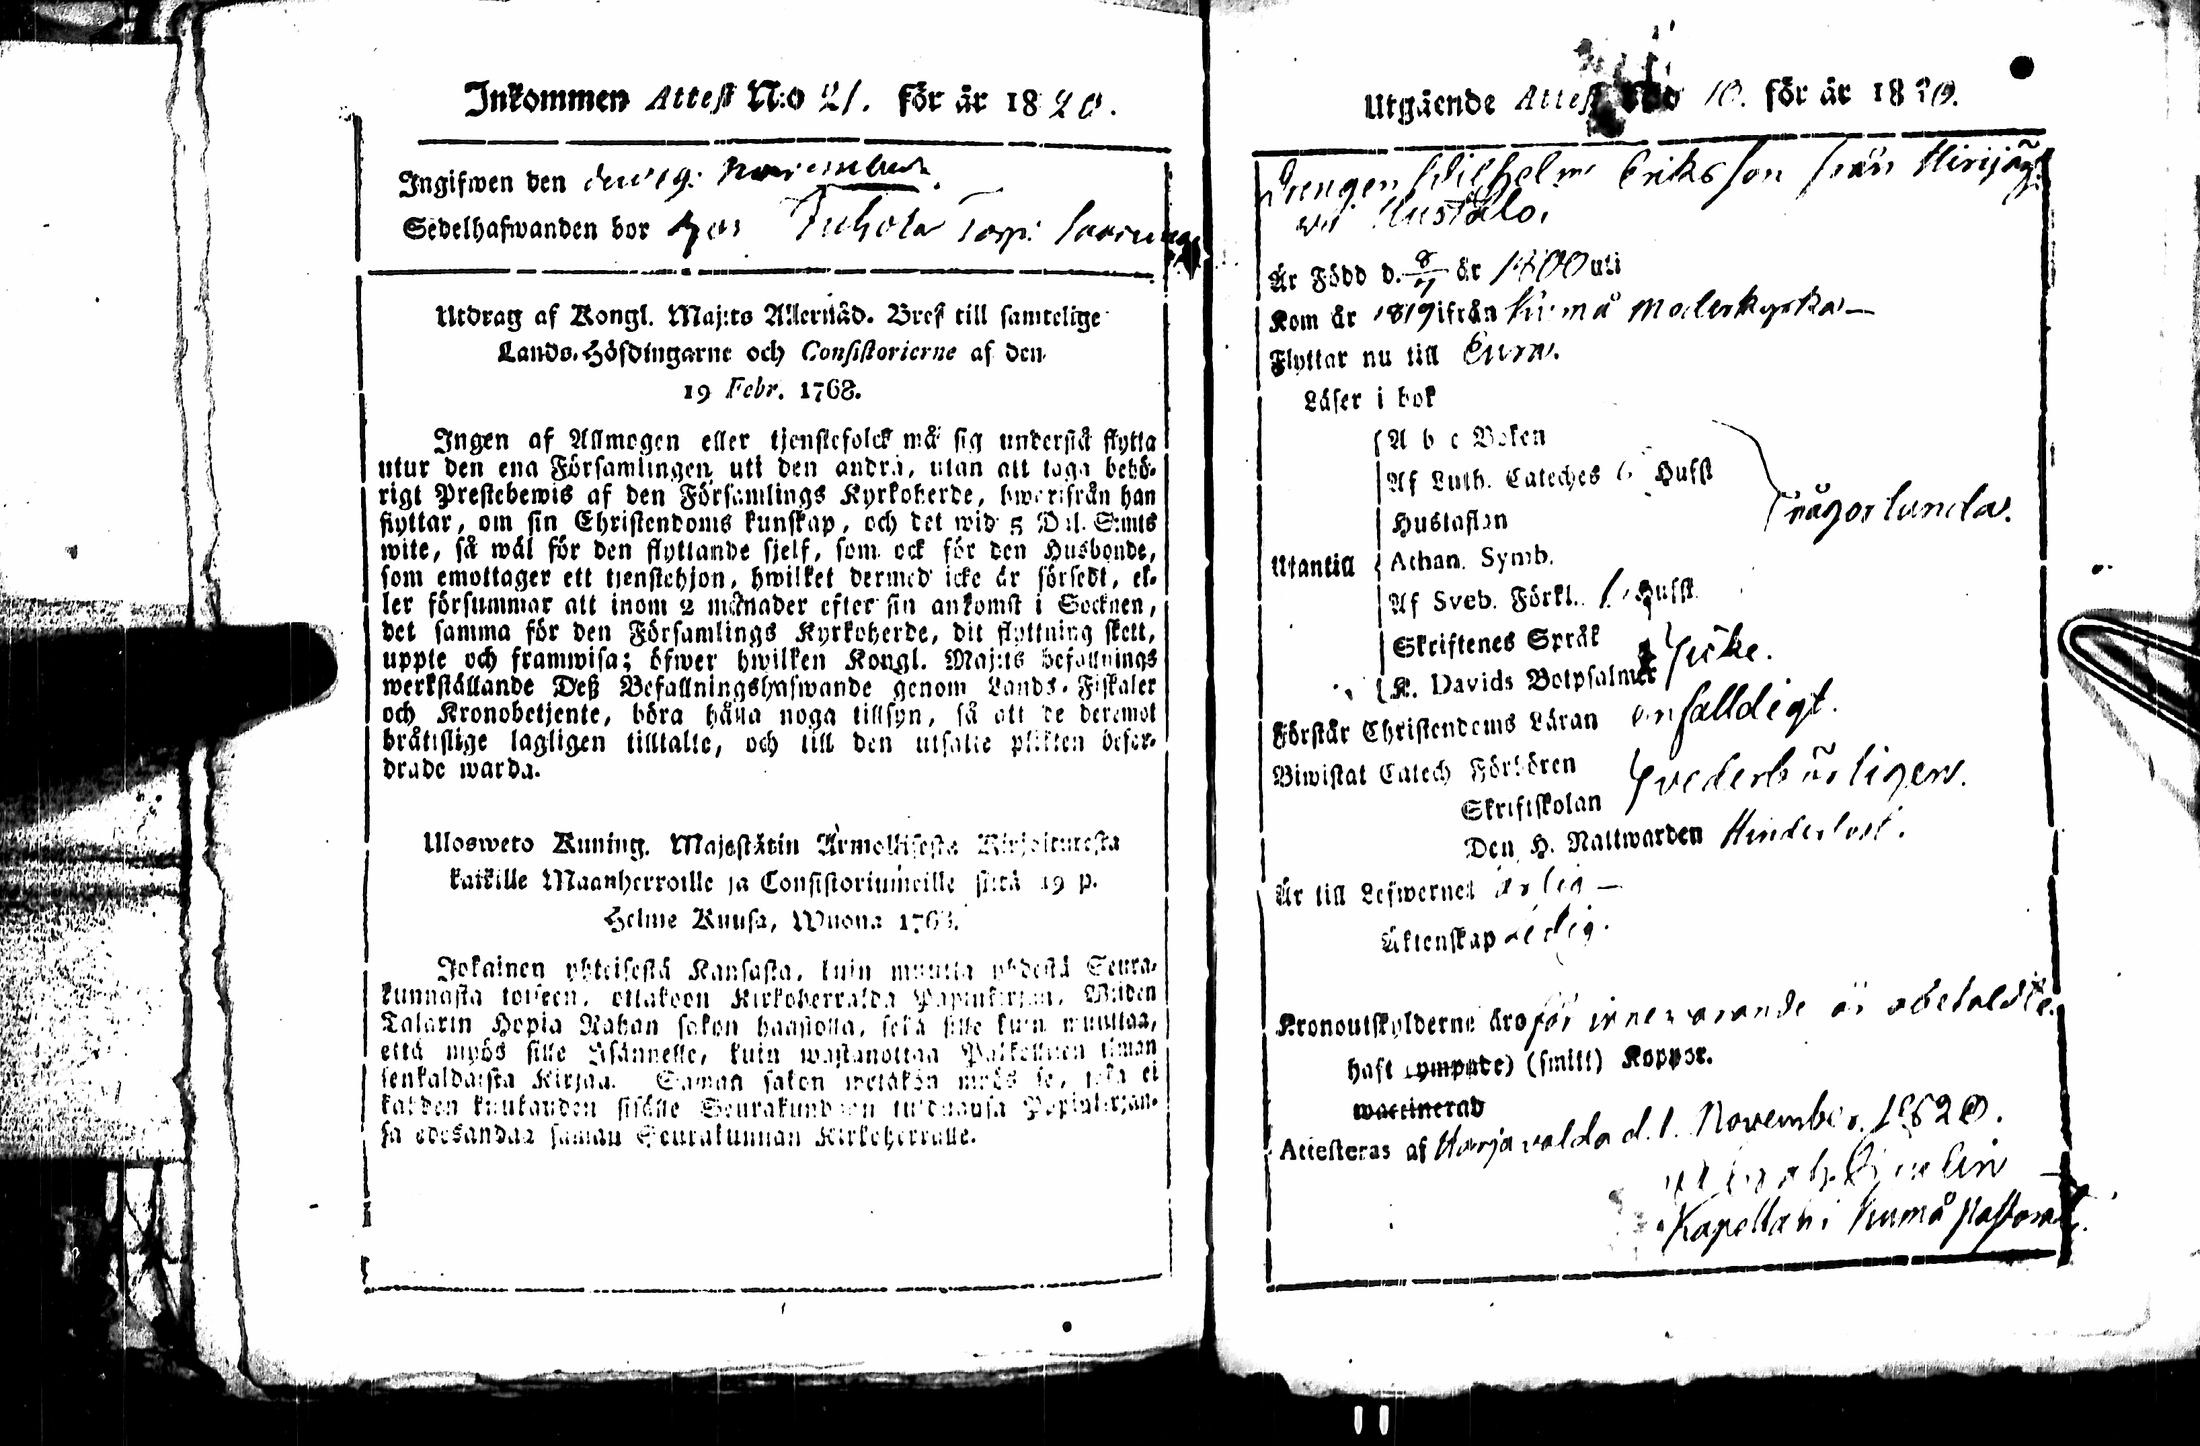 Inkommen Attest N:o 21. för år 1820.
Ingifwen den den 19: november.
Sedelhafwanden bor hos Juhola Torp:
Utdrag af Kongl. Maj:ts Allernåd. Bref till samtelige
Lands-Höfdingarne och Consistorierne af den
19 Febr. 1768.
Ingen af Allmogen eller tjenstefolck må sig understå flytta
utur den ena Församlingen uti den andra, utan att taga behö-
rigt Prestebewis af den Församlings Kyrkoherde, hwarifrån han
flyttar, om sin Christendoms kunskap, och det wid 5 Dal. S:mts
wite, så wäl för den flyttande sjelf, som ock för den Husbonde,
som emottager ett tjenstehjon, hwilket dermed icke är försedt, el-
ler försummar att inom 2 månader efter sin ankomst i Socknen,
det samma för den Församlings Kyrkoherde, dit flyttning skett,
uppte och framwisa; öfwer hwilken Kongl. Maj:ts befallnings
werkställande Deß Befallningshafwande genom Lands-Fiskaler
och Kronobetjente, böra hålla noga tillsyn, så att de deremot
bråtislige lagligen tilltalte, och till den utsatte plikten befor-
drade warda.
Ulosweto Kuning. Majestätin Armollisesta Kirjoituresta
kaikille Maanherroille ja Consistoriumeille siitä 19 p.
Helme Kuusa, Wuona 1768.
Jokainen yhteisestä Kansasta, kuin muutta yhdestä Seura-
kunnasta toiseen, ottakoon Kirkoherralda Papinkirjan, Wiiden
Talarin Hopia Rahan sakon haastolla, sekä sille kuin muuttaa,
että myös sille Isännelle, kuin wastanottaa Palkollisen ilman
senkaldaista Kirjaa. Saman sakon wetäkön myös se, joka ei
kahden kuukauden sisälle Seurakundaan tulduansa Papinkirjan-
sa edesandaa saman Seurakunnan Kirkoherralle.
Utgående Attest N:o 10. för år 1820.
Drengen Wilhelm Eriksson från Hirijärvi
Kustalo.
Är Född d. 8/7 år 1800 uti
Kom år 1819 ifrån Kumå Moderkyrka—
Flyttar nu till Eura.
Läser i bok
A b c Boken
Af Luth. Cateches Hufst
Hustaflan
någorlunda.
Utantill Athan. Symb.
Af Sveb. Förkl. Hufst
Skriftenes Språk
K. Davids Botpsalmer
icke.
Förstår Christendoms Läran enfalldigt.
Biwistat Catech Förhören
Skriftskolan
vederbörligen.
Den H. Nattwarden Hinderlöst.
Är till Lefwernet ärlig —
Äktenskap ledig.
Kronoutskylderne äro för innevarande år obetaldte.
haft (ympade) (smitt) Koppor.
waccinerad
Attesteras af Harjavalda d. 1. November 1820.
Kapellan i Kumå Pastorat.